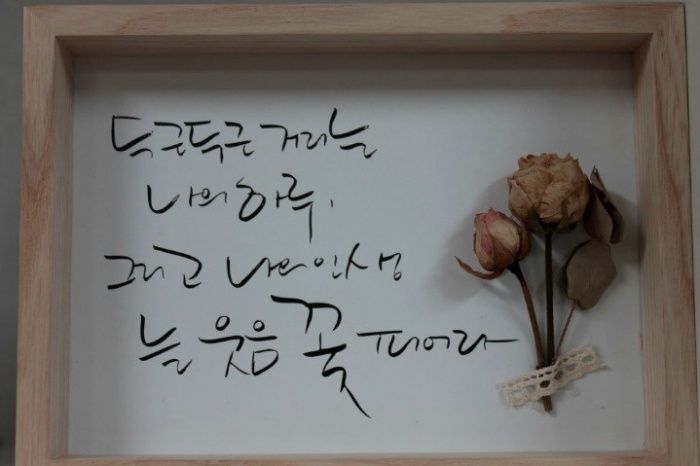 두근두근 거리는
나의 하루,
그리고 나의 인생
늘 웃음꽃 피어라